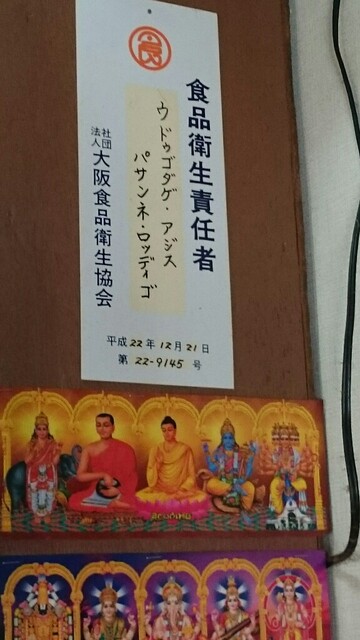 食
食品衛生責任者
ウドゥゴダゲ・アジス
パサンネ・ロッディゴ
社団法人 大阪食品衛生協会
平成22年12月21日
第 22-9145 号